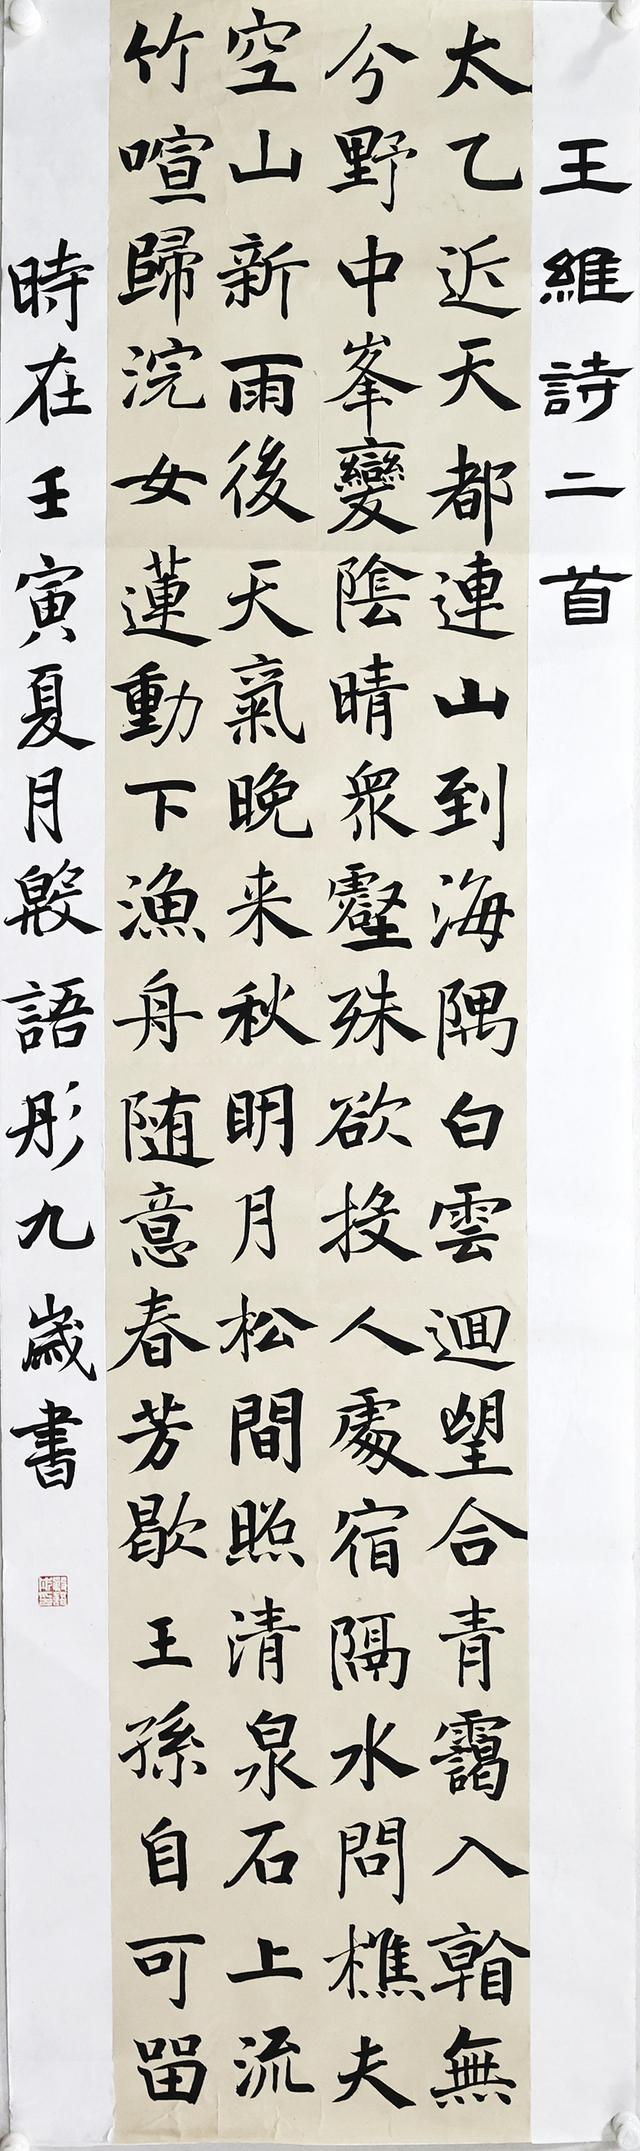 王維詩二首
太乙近天都連山到海隅白雲迴望合青靄入看無
分野中峯變陰晴眾壑殊欲投人處宿隔水問樵夫
空山新雨後天氣晚来秋眀月松間照清泉石上流
竹喧歸浣女蓮動下漁舟随意春芳歇王孫自可留
時在壬寅夏月殷語彤九歲書